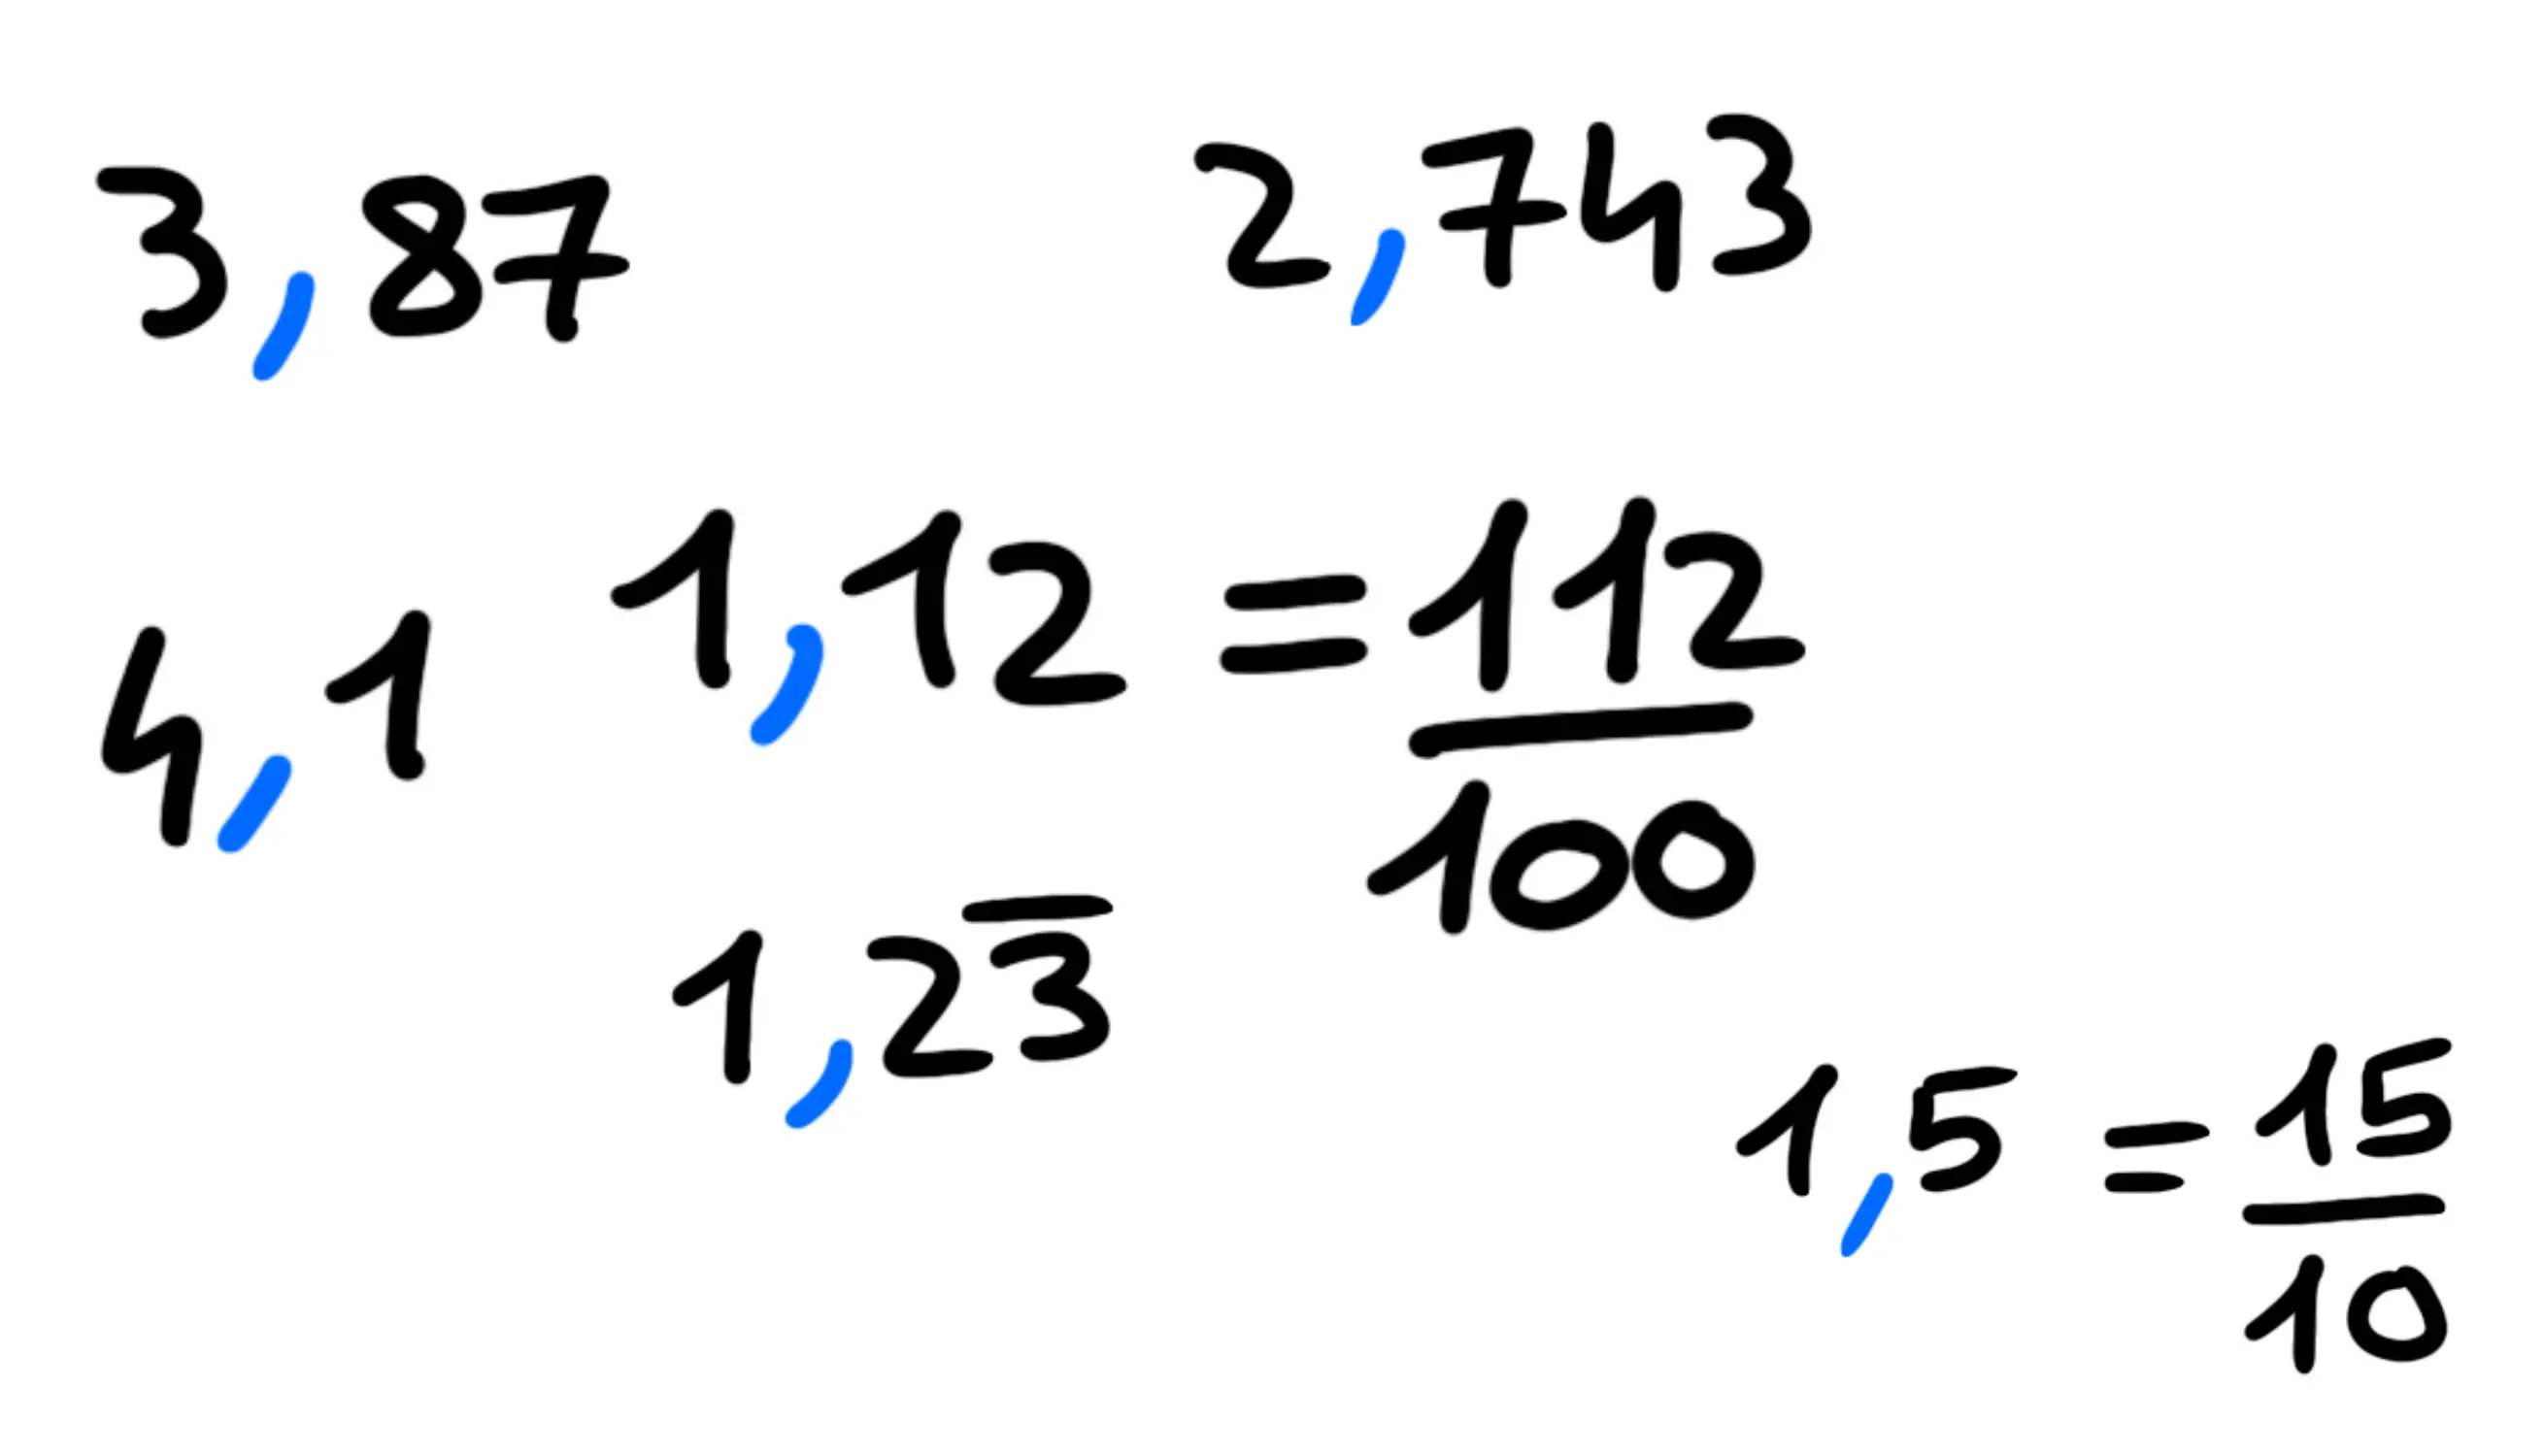 3,87
2,743
4,1
1,12 = 112/100
1,23̅
1,5 = 15/10